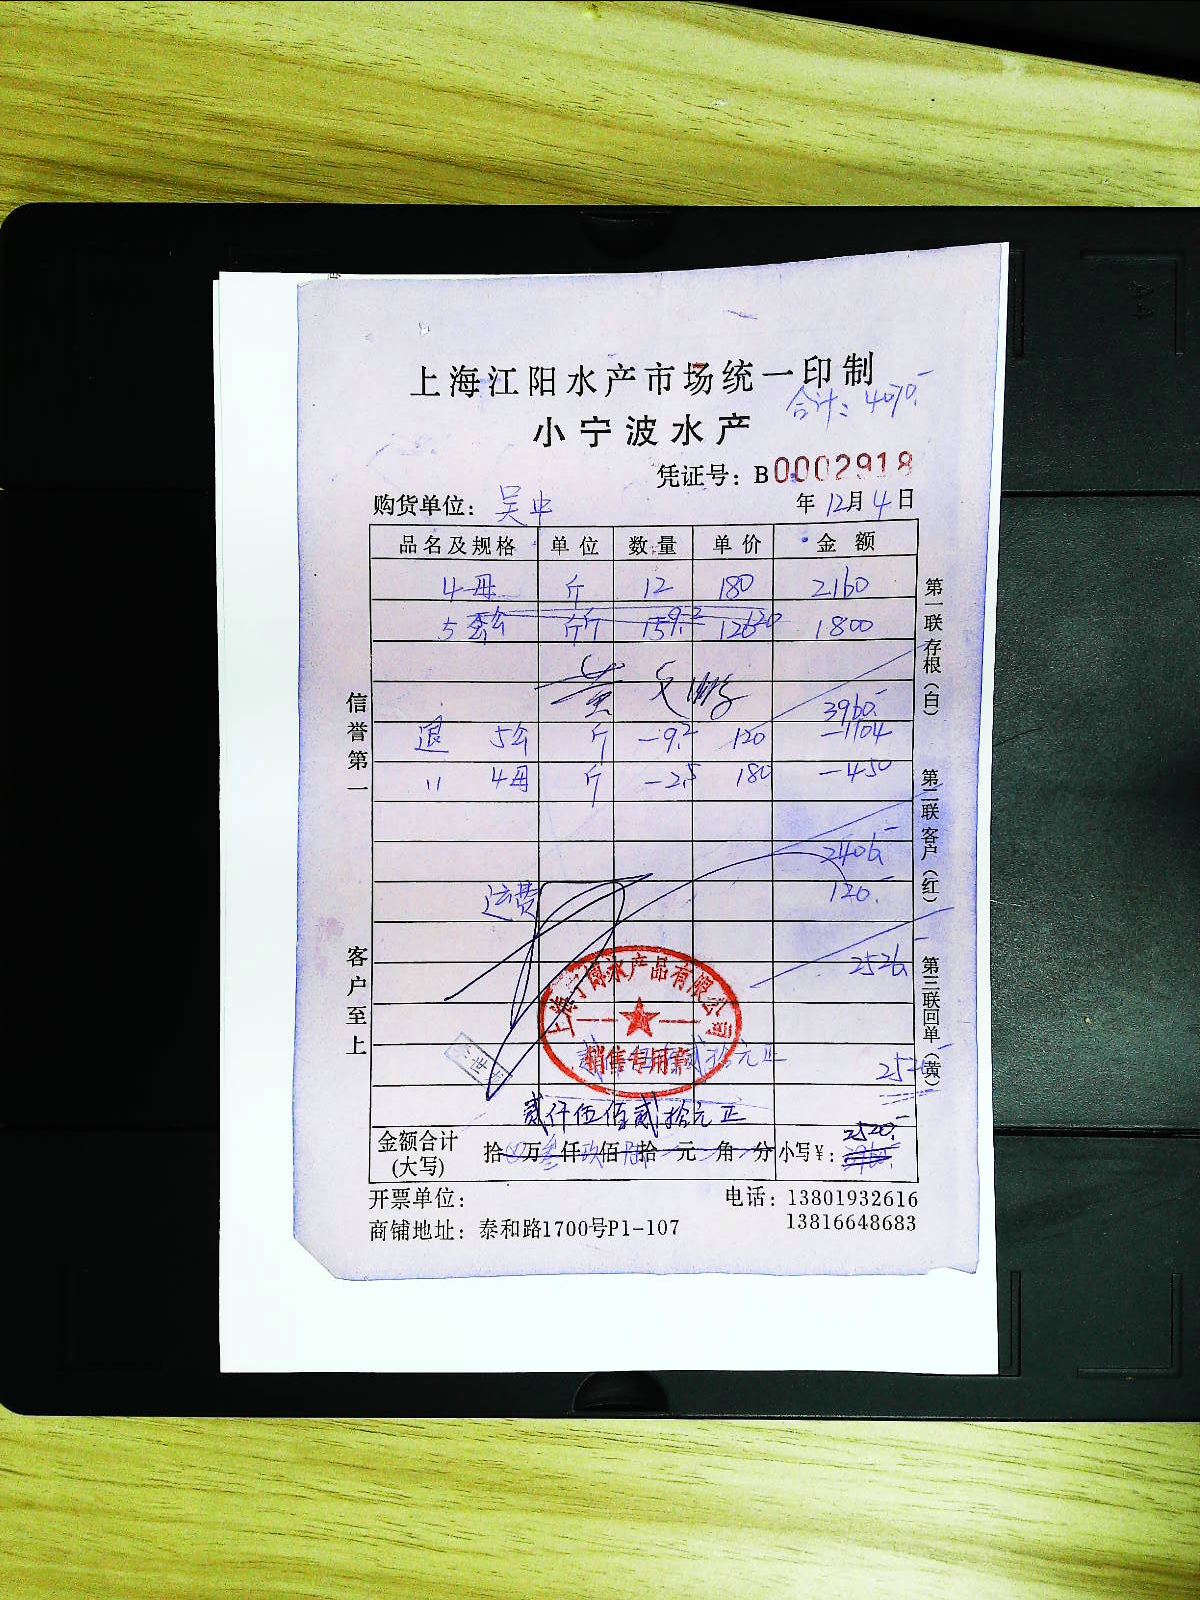 上海江阳水产市场统一印制
合计：4070.-
小宁波水产
凭证号：B0002918
购货单位：吴中
年12月4日
品名及规格 单位 数量 单价 金额
4母 斤 12 180 2160
5公 斤 1800
3960.-
退 5公 斤 -9.2 120 -1104
〃 4母 斤 -2.5 180 -450
2406.-
运费 120.-
2526.-
上海宁博水产品有限公司
销售专用章
贰拾元正
贰仟伍佰贰拾元正
2520.-
金额合计(大写) 拾 万 仟 佰 拾 元 角 分 小写¥：
开票单位：
电话：13801932616
商铺地址：泰和路1700号P1-107
13816648683
信誉第一
客户至上
第一联存根（白）
第二联客户（红）
第三联回单（黄）